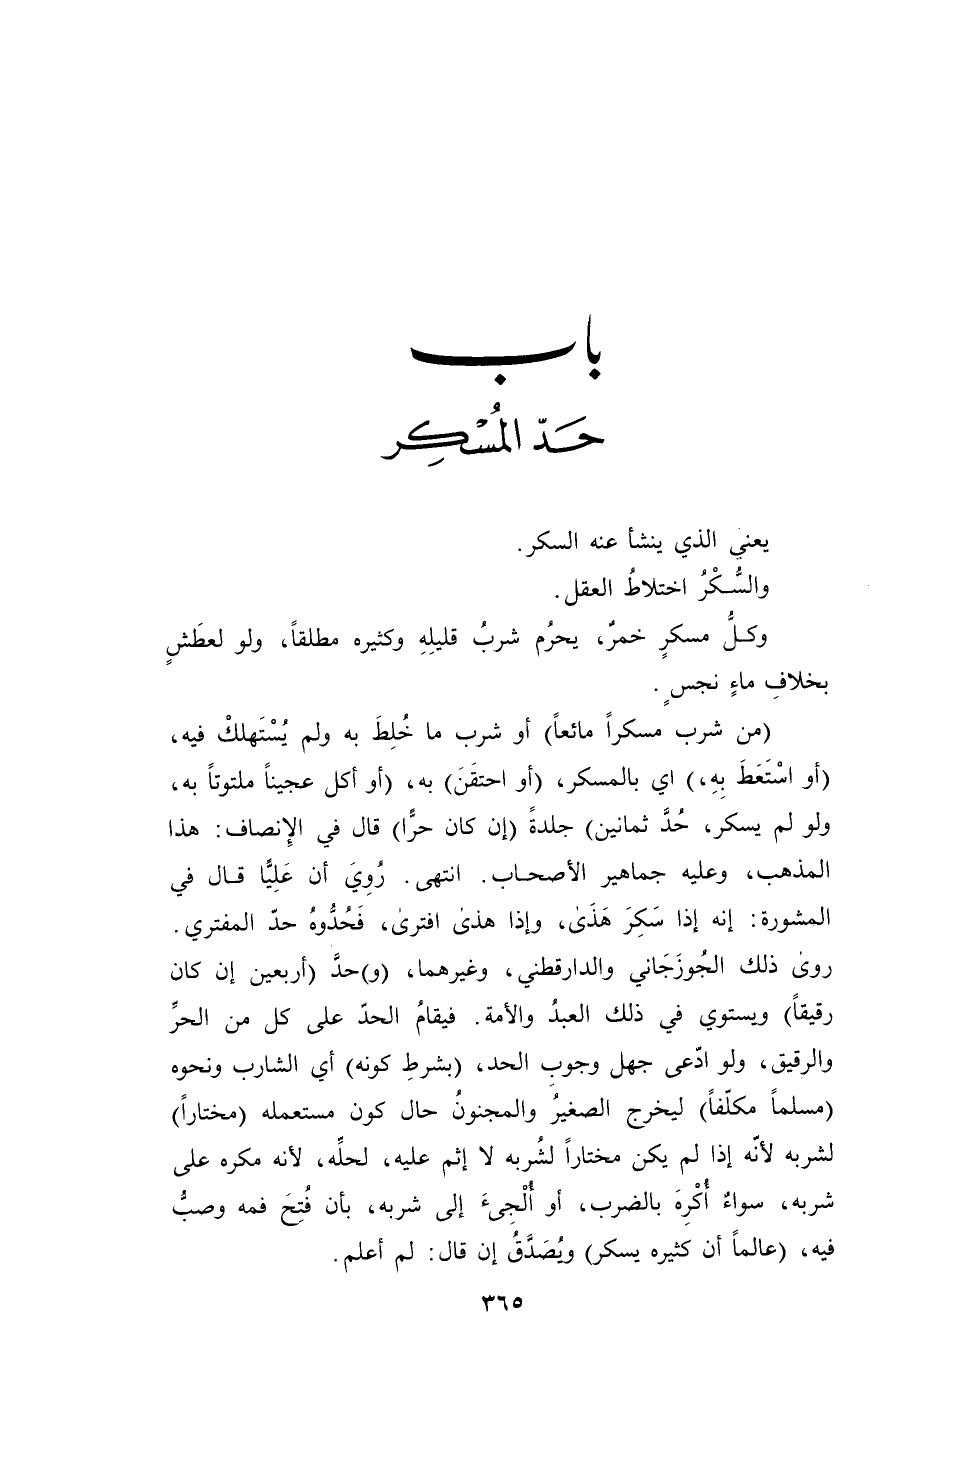 باب
حَدّ المُسْكِر
يعني الذي ينشأ عنه السكر.
والسُّكْرُ اختلاطُ العقل.
وكلُّ مسكرٍ خمرٌ، يحرُم شربُ قليلِهِ وكثيره مطلقاً، ولو لعطَشٍ
بخلافِ ماءٍ نجسٍ.
(من شرب مسكراً مائعاً) أو شرب ما خُلِطَ به ولم يُسْتَهلكْ فيه،
(أو اسْتَعَطَ بِهِ،) اي بالمسكر، (أو احتقَنَ) به، (أو أكل عجيناً ملتوتاً به،
ولو لم يسكر، حُدَّ ثمانين) جلدةً (إن كان حرًّا) قال في الإنصاف: هذا
المذهب، وعليه جماهير الأصحاب. انتهى. رُوِيَ أن عَلِيًّا قال في
المشورة: إنه إذا سَكِرَ هَذَىٰ، وإذا هذىٰ افترىٰ، فَحُدُّوهُ حدّ المفتري.
روىٰ ذلك الجُوزَجَاني والدارقطني، وغيرهما، (و)حدَّ (أربعين إن كان
رقيقاً) ويستوي في ذلك العبدُ والأمة. فيقامُ الحدّ على كل من الحرِّ
والرقيق، ولو ادّعى جهل وجوبِ الحد، (بشرطِ كونه) أي الشارب ونحوه
(مسلماً مكلّفاً) ليخرج الصغيرُ والمجنونُ حال كون مستعمله (مختاراً)
لشربه لأنّه إذا لم يكن مختاراً لشُربه لا إثم عليه، لحلِّه، لأنه مكره على
شربه، سواءٌ أُكْرِهَ بالضرب، أو أُلْجِىءَ إلى شربه، بأن فُتِحَ فمه وصبُّ
فيه، (عالماً أن كثيره يسكر) ويُصَدَّقُ إن قال: لم أعلم.
٣٦٥